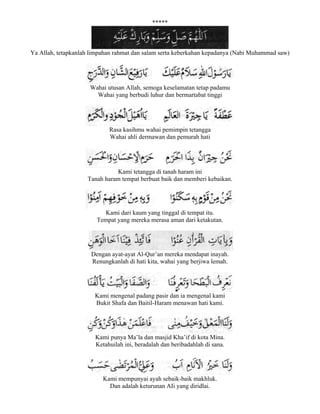 *****
اَللّٰهُمَّ صَلِّ وَسَلِّمْ وَبَارِكْ عَلَيْهِ
Ya Allah, tetapkanlah limpahan rahmat dan salam serta keberkahan kepadanya (Nabi Muhammad saw)
يَارَسُوْلَ اللهِ سَلَامٌ عَلَيْكَ يَارَفِيْعَ الشَّانِ وَالدَّرَجِ
Wahai utusan Allah, semoga keselamatan tetap padamu
Wahai yang berbudi luhur dan bermartabat tinggi
عَطْفَةً يَاجِيْرَةَ الْعَالَمِ يَااُهَيْلَ الْجُوْدِ وَالْكَرَمِ
Rasa kasihmu wahai pemimpin tetangga
Wahai ahli dermawan dan pemurah hati
نَحْنُ جِيْرَانٌ بِذَا الْحَرَمِ حَرَمِ الْاِحْسَانِ وَالْحَسَنِ
Kami tetangga di tanah haram ini
Tanah haram tempat berbuat baik dan memberi kebaikan.
نَحْنُ مِنْ قَوْمٍ بِهِ سَكَنُوْا وَبِهِ مِنْ خَوْفِهِمْ اٰمِنُوْا
Kami dari kaum yang tinggal di tempat itu.
Tempat yang mereka merasa aman dari ketakutan.
وَبِاٰيَاتِ الْقُرْاٰنِ عُنُوْا فَاتَّئِدْ فِيْنَا اَخَا الْوَهَنِ
Dengan ayat-ayat Al-Qur’an mereka mendapat inayah.
Renungkanlah di hati kita, wahai yang berjiwa lemah.
نَعْرِفُ الْبَطْحَا وَتَعْرِفُنَا وَالصَّفَا وَالْبَيْتُ يَأْلَفُنَا
Kami mengenal padang pasir dan ia mengenal kami
Bukit Shafa dan Baitil-Haram menawan hati kami.
وَلَنَا الْمَعْلَى وَخَيْفُ مِنٰى فَاعْلَمَنْ هٰذَا وَكُنْ وَكُنِ
Kami punya Ma’la dan masjid Kha’if di kota Mina.
Ketahuilah ini, beradalah dan beribadahlah di sana.
وَلَنَا خَيْرُ الْاَنَامِ اَبُ وَعَلِيُّ الْمُرْتَضٰى حَسَبُ
Kami mempunyai ayah sebaik-baik makhluk.
Dan adalah keturunan Ali yang diridlai.